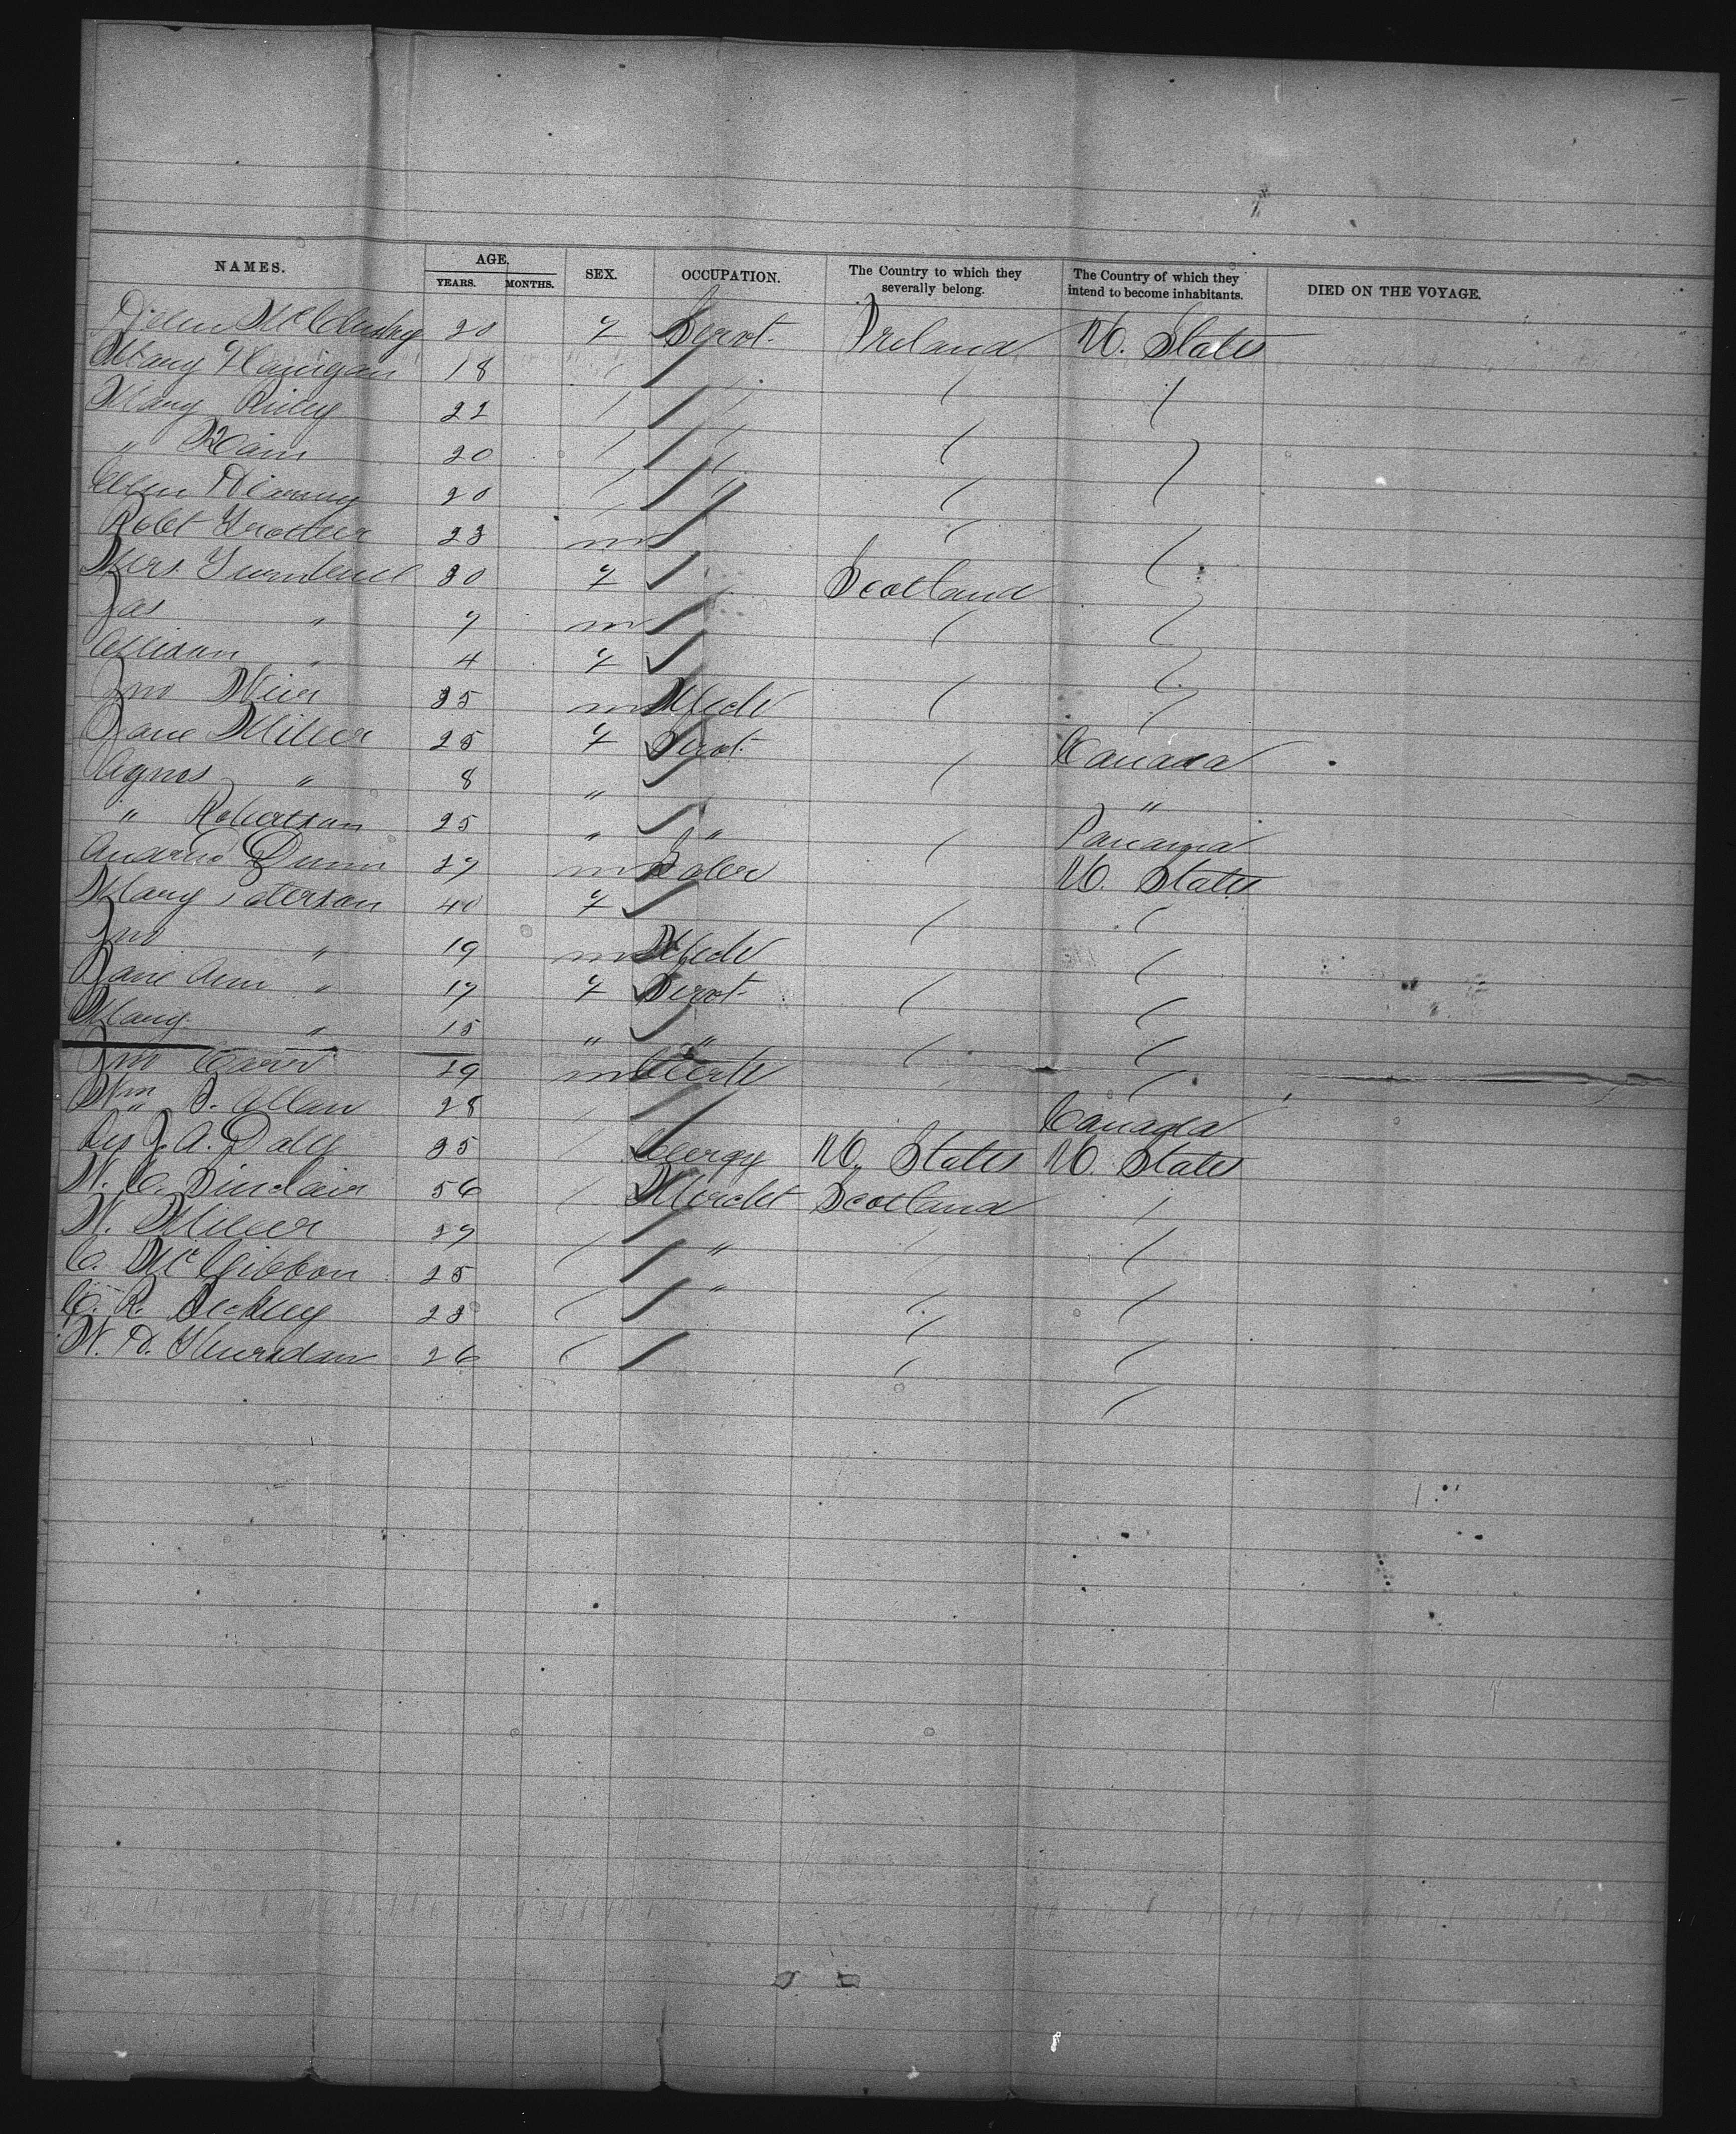 NAMES. AGE, SEX. OCCUPATION. The Country to which they severally belong. The Country of which they intend to become inhabitants. DIED ON THE VOYAGE.
YEARS. MONTHS.
20 f Servt. Ireland U. States
Mary Flanigan 18
Mary Riley 22
" Kain 20
Ellen 20
Robt Trotter 23 m
Mrs Turnbull 30 f Scotland
Jas " 7 m
Allison " 4 f
Jno Weir 35 m Mech
Jane Miller 25 f Servt. Canada
Agnes " 8 " "
" Robertson 25 " " Panama
Andrew Dunn 27 m U. States
Mary Paterson 40 f
Jno " 19 m Mech
Jane Ann " 17 f Servt
Mary " 15 " "
Jno Carr 19 m Clerk
Wm S. Allan 28 Canada
Rev J. A. Daly 35 Clergy U. States U. States
W. C. Sinclair 56 Mercht Scotland
W. Miller 27 "
C. McGibbon 25 "
C. R. 23
W. D. 26